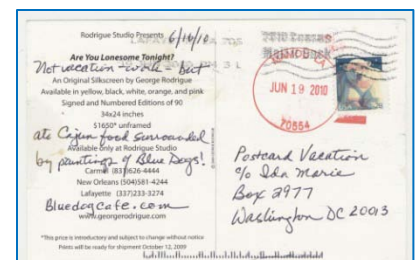 Rodrigue Studio Presents 6/16/10
Are You Lonesome Tonight?
Not vacation - work - but
An Original Silkscreen by George Rodrigue
Available in yellow, black, white, orange, and pink
Signed and Numbered Editions of 90
34x24 inches
$1650* unframed
ate Cajun food surrounded
Available only at Rodrigue Studio
by paintings of Blue Dogs!
Carmel (831)626-4444
New Orleans (504)581-4244
Lafayette (337)233-3274
Bluedogcafe.com
www.georgerodrigue.com
*This price is introductory and subject to change without notice
Prints will be ready for shipment October 12, 2009
JUN 19 2010
70554
Postcard Vacation
c/o Ida Marie
Box 2977
Washington DC 20013